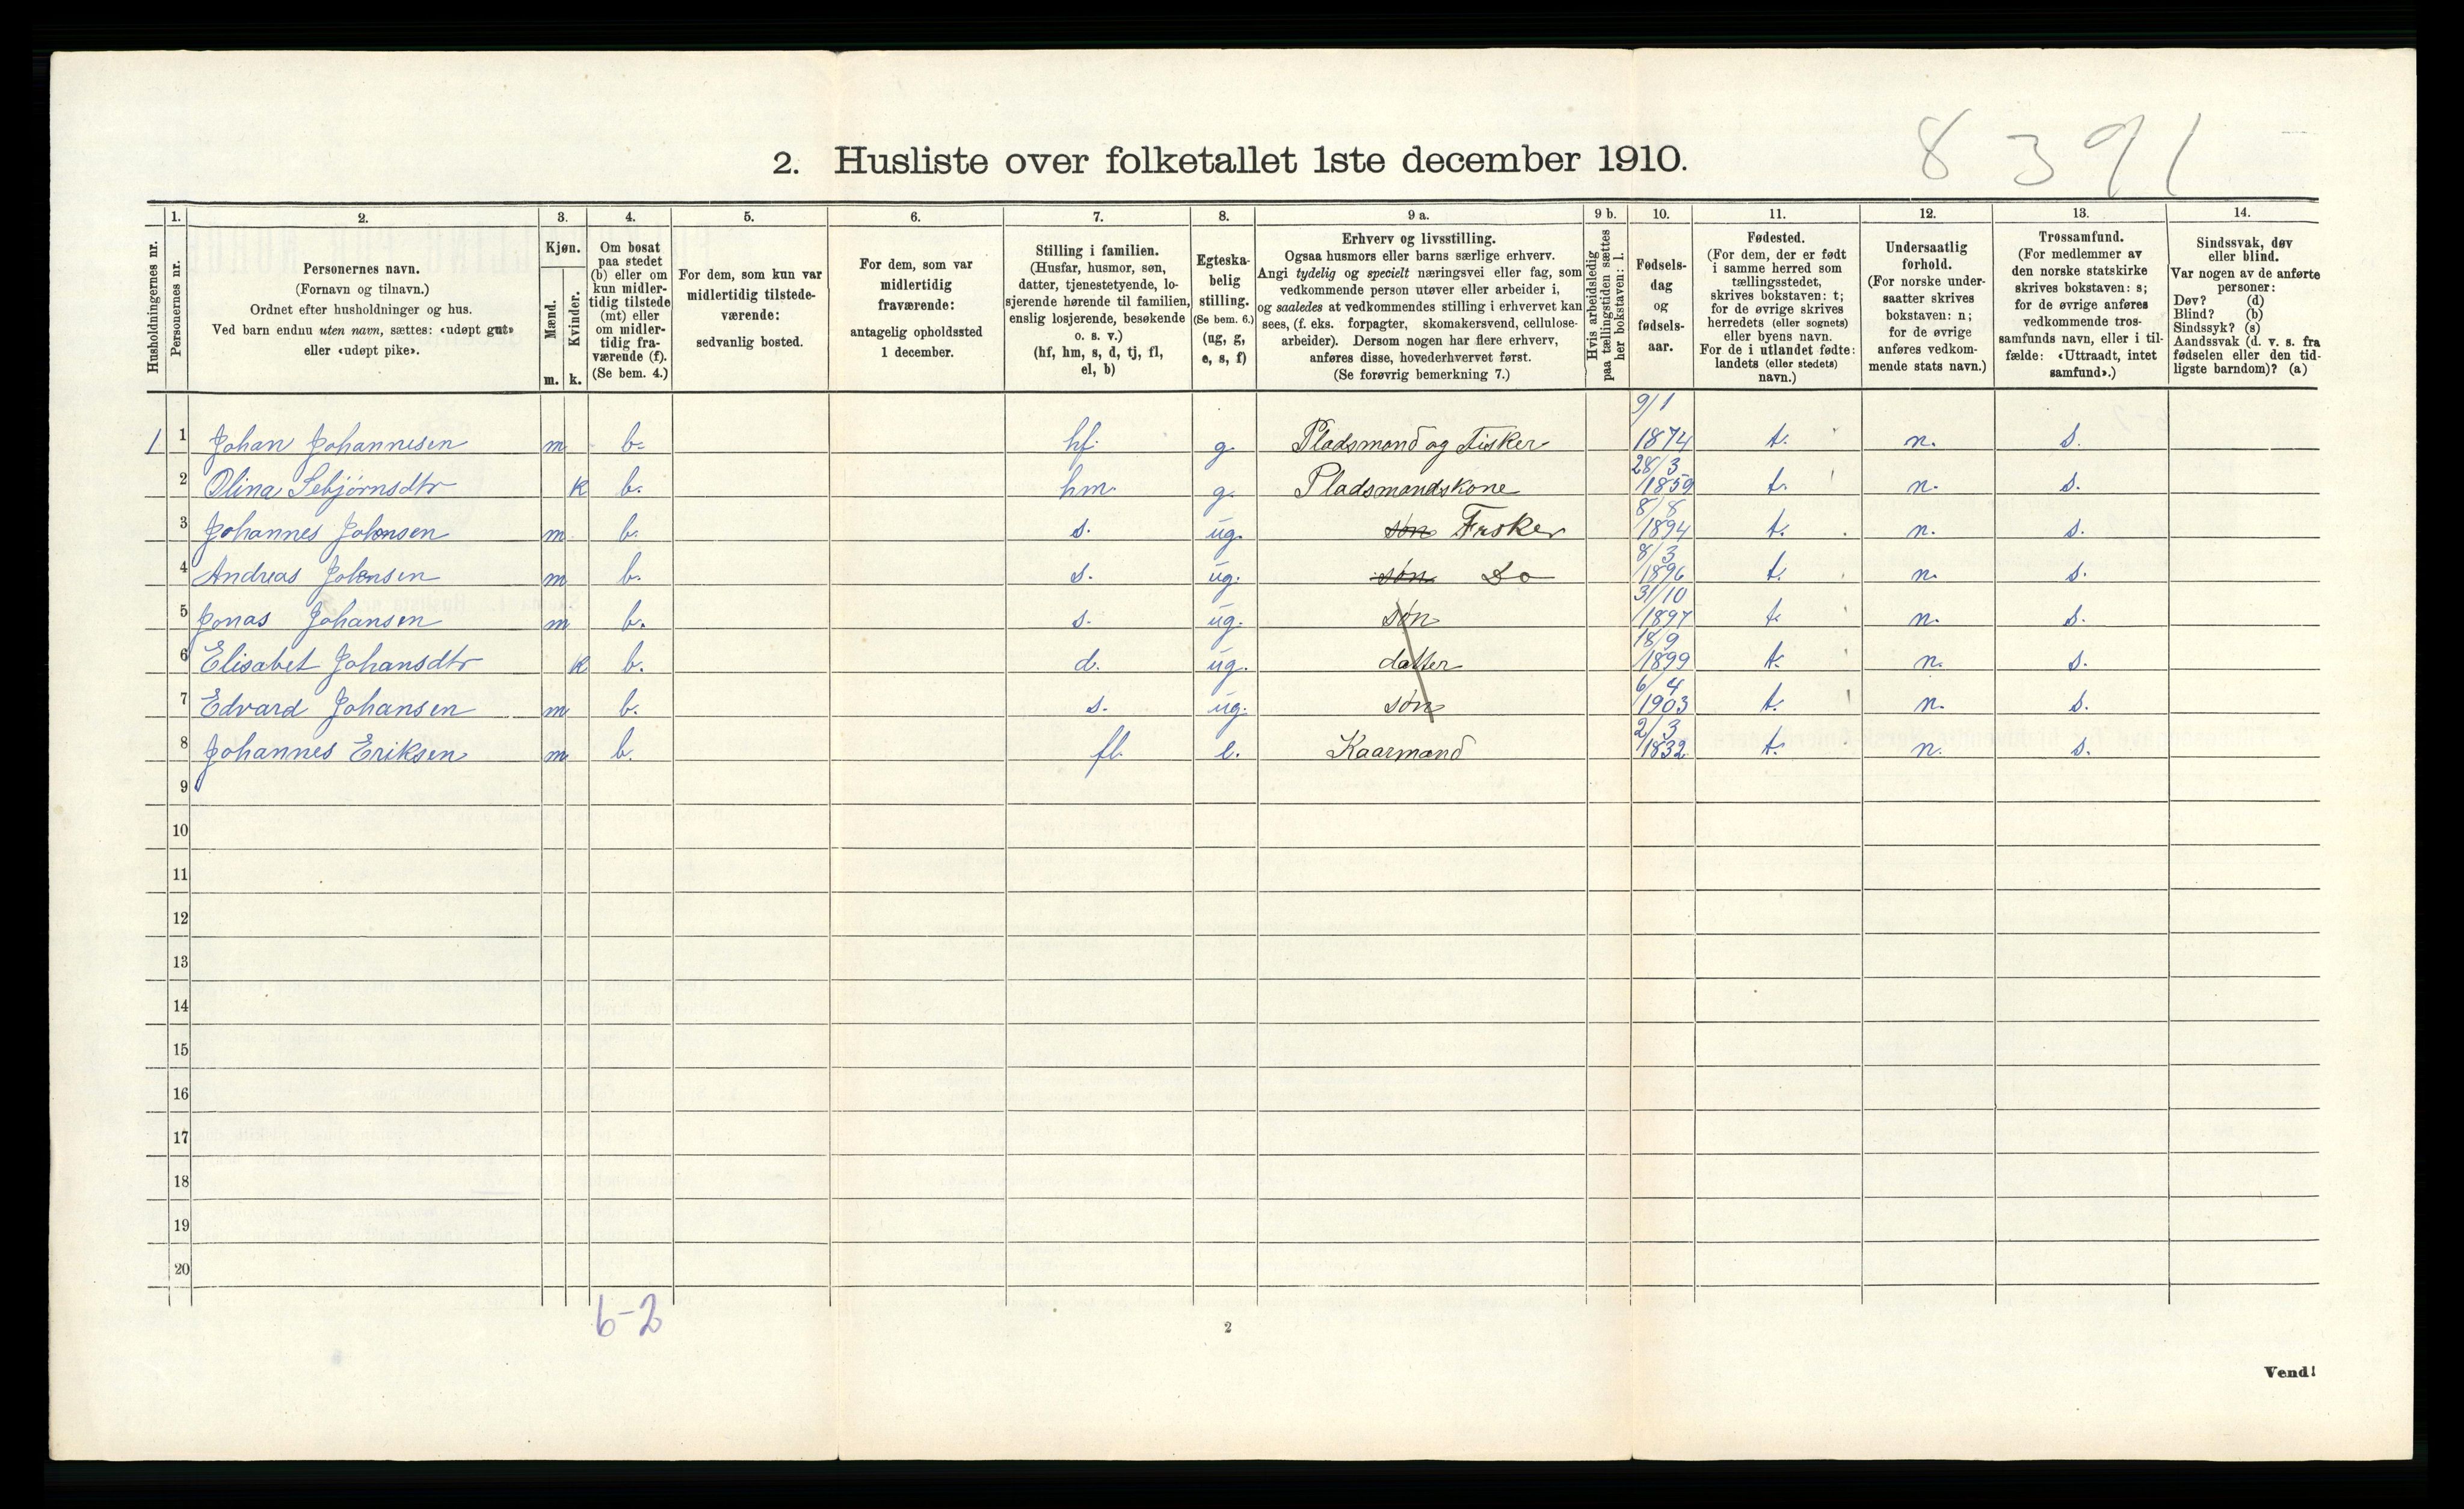 8 3 9 1
2. Husliste over folketallet 1ste december 1910.
Husholdningernes nr.
1.
Personernes nr.
2.
Personernes navn.
(Fornavn og tilnavn.)
Ordnet efter husholdninger og hus.
Ved barn endnu uten navn, sættes: «udøpt gut»
eller «udøpt pike».
3.
Kjøn.
Mænd.
Kvinder.
m. k.
4.
Om bosat
paa stedet
(b) eller om
kun midler-
tidig tilstede
(mt) eller
om midler-
tidig fra-
værende (f).
(Se bem. 4.)
5.
For dem, som kun var
midlertidig tilstede-
værende:
sedvanlig bosted.
6.
For dem, som var
midlertidig
fraværende:
antagelig opholdssted
1 december.
7.
Stilling i familien.
(Husfar, husmor, søn,
datter, tjenestetyende, lo-
sjerende hørende til familien,
enslig losjerende, besøkende
o. s. v.)
(hf, hm, s, d, tj, fl,
el, b)
8.
Egteska-
belig
stilling.
(Se bem. 6.)
(ug, g,
e, s, f)
9 a.
Erhverv og livsstilling.
Ogsaa husmors eller barns særlige erhverv.
Angi tydelig og specielt næringsvei eller fag, som
vedkommende person utøver eller arbeider i,
og saaledes at vedkommendes stilling i erhvervet kan
sees, (f. eks. forpagter, skomakersvend, cellulose-
arbeider). Dersom nogen har flere erhverv,
anføres disse, hovederhvervet først.
(Se forøvrig bemerkning 7.)
9 b.
Hvis arbeidsledig
paa tællingstiden sættes
her bokstaven: l.
10.
Fødsels-
dag
og
fødsels-
aar.
11.
Fødested.
(For dem, der er født
i samme herred som
tællingsstedet,
skrives bokstaven: t;
for de øvrige skrives
herredets (eller sognets)
eller byens navn.
For de i utlandet fødte:
landets (eller stedets)
navn.)
12.
Undersaatlig
forhold.
(For norske under-
saatter skrives
bokstaven: n;
for de øvrige
anføres vedkom-
mende stats navn.)
13.
Trossamfund.
(For medlemmer av
den norske statskirke
skrives bokstaven: s;
for de øvrige anføres
vedkommende tros-
samfunds navn, eller i til-
fælde: «Uttraadt, intet
samfund».)
14.
Sindssvak, døv
eller blind.
Var nogen av de anførte
personer:
Døv? (d)
Blind? (b)
Sindssyk? (s)
Aandssvak (d. v. s. fra
fødselen eller den tid-
ligste barndom)? (a)
1 1 Johan Johannesen m b. hf. g. Pladsmand og Fisker 9/1 1874 t. n. s.
2 Olina Sebjørnsdtr k b. hm. g. Pladsmandskone 28/3 1859 t. n. s.
3 Johannes Johansen m b. s. ug. søn Fisker 8/8 1894 t. n. s.
4 Andreas Johansen m b. s. ug. søn Do 8/3 1896 t. n. s.
5 Jonas Johansen m b. s. ug. søn 31/10 1897 t. n. s.
6 Elisabet Johansdtr k b. d. ug. datter 18/9 1899 t. n. s.
7 Edvard Johansen m b. s. ug. søn 6/4 1903 t. n. s.
8 Johannes Eriksen m b. fl. e. Kaarmand 2/3 1832 t. n. s.
9
10
11
12
13
14
15
16
17
18
19
20
6-2
2
Vend!